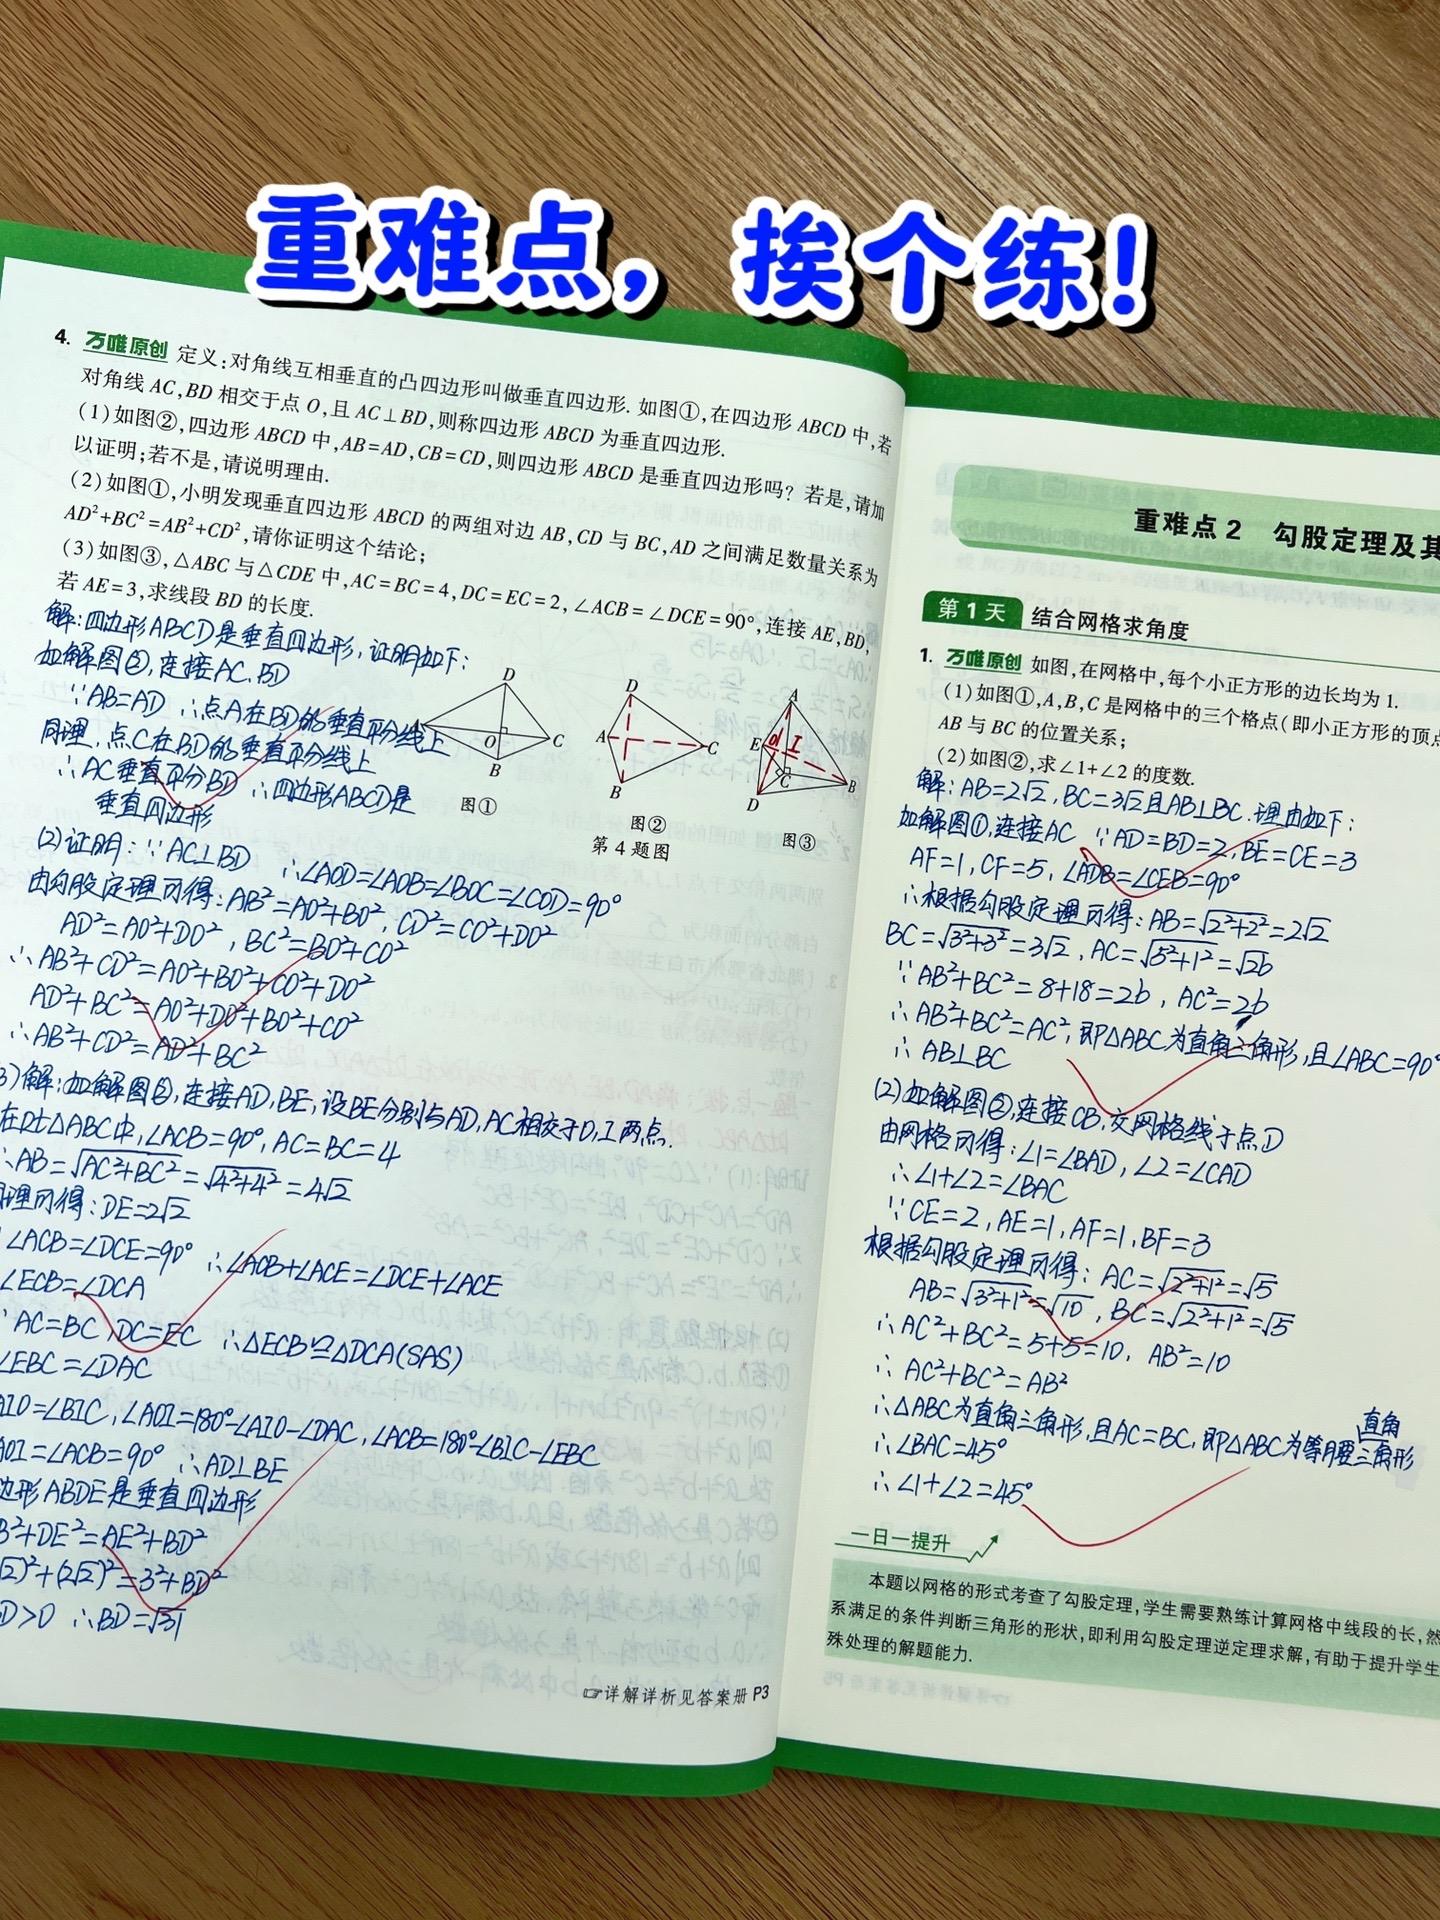 重难点，挨个练！
4. 万唯原创 定义:对角线互相垂直的凸四边形叫做垂直四边形. 如图①,在四边形 ABCD 中,若
对角线 AC,BD 相交于点 O,且 AC⊥BD,则称四边形 ABCD 为垂直四边形.
(1)如图②,四边形 ABCD 中,AB=AD,CB=CD,则四边形 ABCD 是垂直四边形吗？若是,请加
以证明;若不是,请说明理由.
(2)如图①,小明发现垂直四边形 ABCD 的两组对边 AB,CD 与 BC,AD 之间满足数量关系为
AD²+BC²=AB²+CD²,请你证明这个结论;
(3)如图③,△ABC 与△CDE 中,AC=BC=4,DC=EC=2,∠ACB=∠DCE=90°,连接 AE,BD,
若 AE=3,求线段 BD 的长度.
解:四边形ABCD是垂直四边形,证明如下:
如解图②,连接AC、BD
∵AB=AD ∴点A在BD的垂直平分线上
同理,点C在BD的垂直平分线上
∴AC垂直平分BD ∴四边形ABCD是
垂直四边形
D
O
C
B
图①
D
A
C
B
图②
A
E
O
I
C
B
D
图③
第 4 题图
(2)证明:∵AC⊥BD ∴∠AOD=∠AOB=∠BOC=∠COD=90°
由勾股定理可得:AB²=AO²+BO²,CD²=CO²+DO²
AD²=AO²+DO²,BC²=BO²+CO²
∴AB²+CD²=AO²+BO²+CO²+DO²
AD²+BC²=AO²+DO²+BO²+CO²
∴AB²+CD²=AD²+BC²
3)解:如解图③,连接AD,BE,设BE分别与AD,AC相交于O,I两点.
在Rt△ABC中,∠ACB=90°,AC=BC=4
∴AB=√AC²+BC²=√4²+4²=4√2
同理可得:DE=2√2
∠ACB=∠DCE=90° ∴∠ACB+∠ACE=∠DCE+∠ACE
∠ECB=∠DCA
AC=BC,DC=EC ∴△ECB≌△DCA(SAS)
∠EBC=∠DAC
AIO=∠BIC,∠AOI=180°-∠AIO-∠DAC,∠ACB=180°-∠BIC-∠EBC
AOI=∠ACB=90° ∴AD⊥BE
边形ABDE是垂直四边形
B²+DE²=AE²+BD²
√2)²+(2√2)²=3²+BD²
D>0 ∴BD=√31
☞详解详析见答案册 P3
重难点 2 勾股定理及其
第 1 天 结合网格求角度
1. 万唯原创 如图,在网格中,每个小正方形的边长均为 1.
(1)如图①,A,B,C 是网格中的三个格点(即小正方形的顶点
AB 与 BC 的位置关系;
(2)如图②,求∠1+∠2 的度数.
解:AB=2√2,BC=3√2且AB⊥BC.理由如下:
如解图①,连接AC ∵AD=BD=2,BE=CE=3
AF=1,CF=5,∠ADB=∠CEB=90°
∴根据勾股定理可得:AB=√2²+2²=2√2
BC=√3²+3²=3√2,AC=√5²+1²=√26
∵AB²+BC²=8+18=26,AC²=26
∴AB²+BC²=AC²,即△ABC为直角三角形,且∠ABC=90°
∴AB⊥BC
(2)如解图②,连接CB,交网格线于点D
由网格可得:∠1=∠BAD,∠2=∠CAD
∴∠1+∠2=∠BAC
∵CE=2,AE=1,AF=1,BF=3
根据勾股定理可得:AC=√2²+1²=√5
AB=√3²+1²=√10,BC=√2²+1²=√5
∴AC²+BC²=5+5=10,AB²=10
∴AC²+BC²=AB²
∴△ABC为直角三角形,且AC=BC,即△ABC为等腰直角三角形
∴∠BAC=45°
∴∠1+∠2=45°
一日一提升
本题以网格的形式考查了勾股定理,学生需要熟练计算网格中线段的长,然
系满足的条件判断三角形的形状,即利用勾股定理逆定理求解,有助于提升学生
殊处理的解题能力.